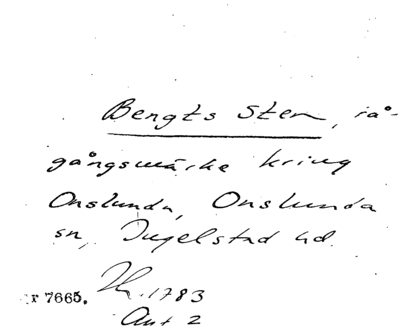 Bengts Sten, rå-
gångsmärke kring
Onslunda, Onslunda
sn, Ingelstad hd.
r 7665. 1783
Akt 2